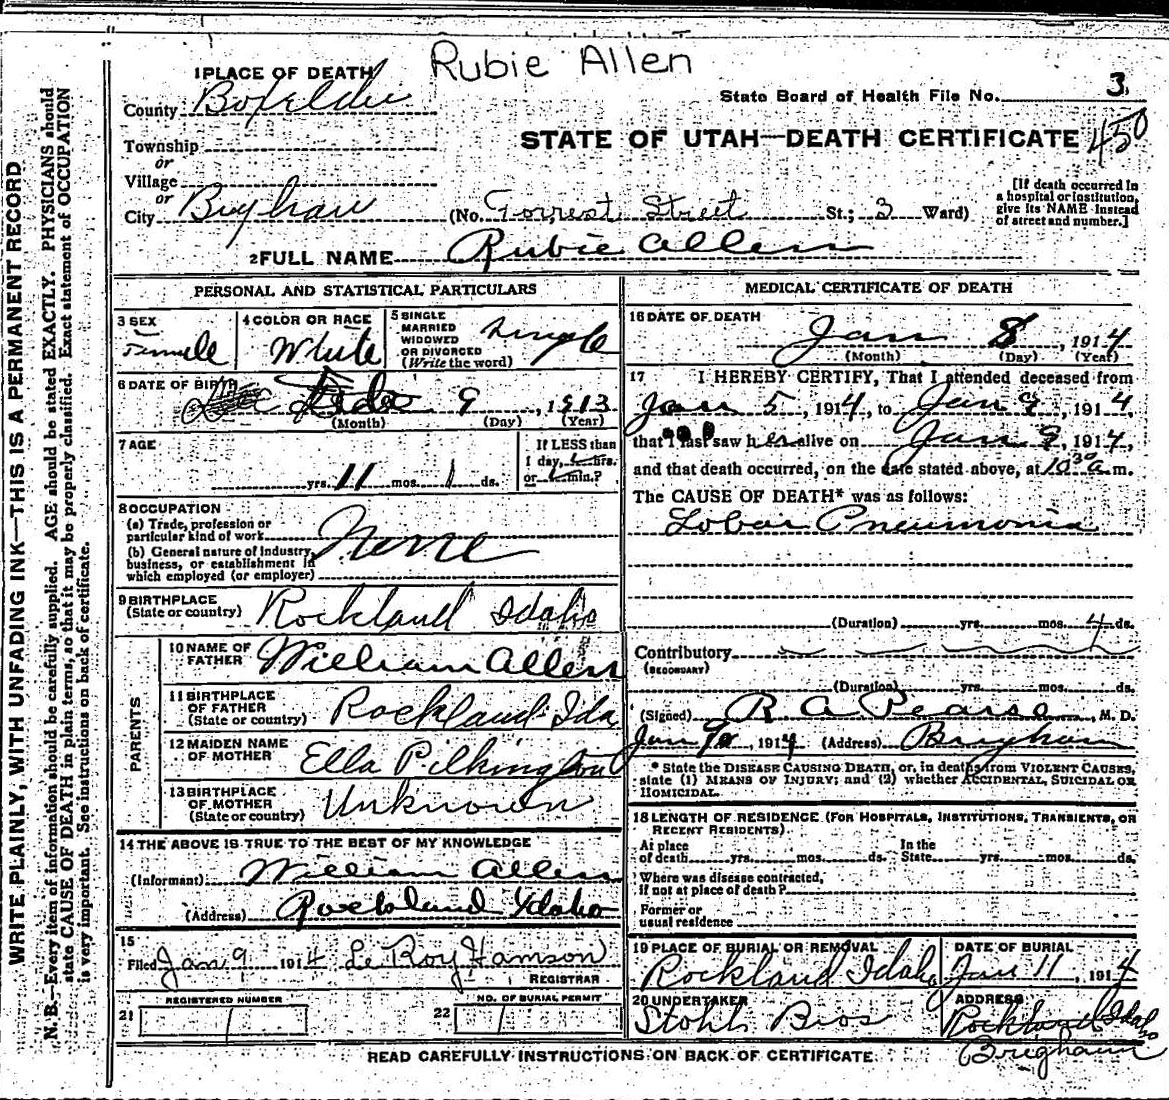 Rubie Allen
1 PLACE OF DEATH
County Boxelder
State Board of Health File No. 3
Township
or
Village
or
City Brigham
STATE OF UTAH—DEATH CERTIFICATE 450
(No. Forrest Street St.; 3 Ward)
[If death occurred in
a hospital or institution,
give its NAME instead
of street and number.]
2 FULL NAME Rubie Allen
PERSONAL AND STATISTICAL PARTICULARS
3 SEX
Female
4 COLOR OR RACE
White
5 SINGLE
MARRIED
WIDOWED
OR DIVORCED
(Write the word)
Single
6 DATE OF BIRTH
9, 1913
(Month) (Day) (Year)
7 AGE
yrs. 11 mos. 1 ds.
If LESS than
1 day, hrs.
or min.?
8 OCCUPATION
(a) Trade, profession or
particular kind of work
(b) General nature of industry,
business, or establishment in
which employed (or employer)
None
9 BIRTHPLACE
(State or country)
Rockland Idaho
PARENTS
10 NAME OF
FATHER
William Allen
11 BIRTHPLACE
OF FATHER
(State or country)
Rockland Ida
12 MAIDEN NAME
OF MOTHER
Ella Pilkington
13 BIRTHPLACE
OF MOTHER
(State or country)
Unknown
14 THE ABOVE IS TRUE TO THE BEST OF MY KNOWLEDGE
(Informant) William Allen
(Address) Rockland Idaho
15
Filed Jan 9 1914 Le Roy Hamson
REGISTRAR
REGISTERED NUMBER
21
NO. OF BURIAL PERMIT
22
MEDICAL CERTIFICATE OF DEATH
16 DATE OF DEATH
Jan 8, 1914
(Month) (Day) (Year)
17 I HEREBY CERTIFY, That I attended deceased from
Jan 5, 1914, to Jan 9, 1914,
that I last saw her alive on Jan 9, 1914,
and that death occurred, on the date stated above, at 10 30 a m.
The CAUSE OF DEATH* was as follows:
Lobar Pneumonia
(Duration) yrs. mos. 4 ds.
Contributory
(SECONDARY)
(Duration) yrs. mos. ds.
(Signed) R A Pearse, M. D.
Jan 9, 1914 (Address) Brigham
* State the DISEASE CAUSING DEATH, or, in deaths from VIOLENT CAUSES,
state (1) MEANS OF INJURY; and (2) whether ACCIDENTAL, SUICIDAL OR
HOMICIDAL.
18 LENGTH OF RESIDENCE (FOR HOSPITALS, INSTITUTIONS, TRANSIENTS, OR
RECENT RESIDENTS).
At place
of death yrs. mos. ds.
In the
State yrs. mos. ds.
Where was disease contracted,
if not at place of death?
Former or
usual residence
19 PLACE OF BURIAL OR REMOVAL
Rockland Idaho
DATE OF BURIAL
Jan 11, 1914
20 UNDERTAKER
Stohl Bros
ADDRESS
Rockland Idaho
Brigham
READ CAREFULLY INSTRUCTIONS ON BACK OF CERTIFICATE.
WRITE PLAINLY, WITH UNFADING INK—THIS IS A PERMANENT RECORD
N. B.—Every item of information should be carefully supplied. AGE should be stated EXACTLY. PHYSICIANS should
state CAUSE OF DEATH in plain terms, so that it may be properly classified. Exact statement of OCCUPATION
is very important. See instructions on back of certificate.